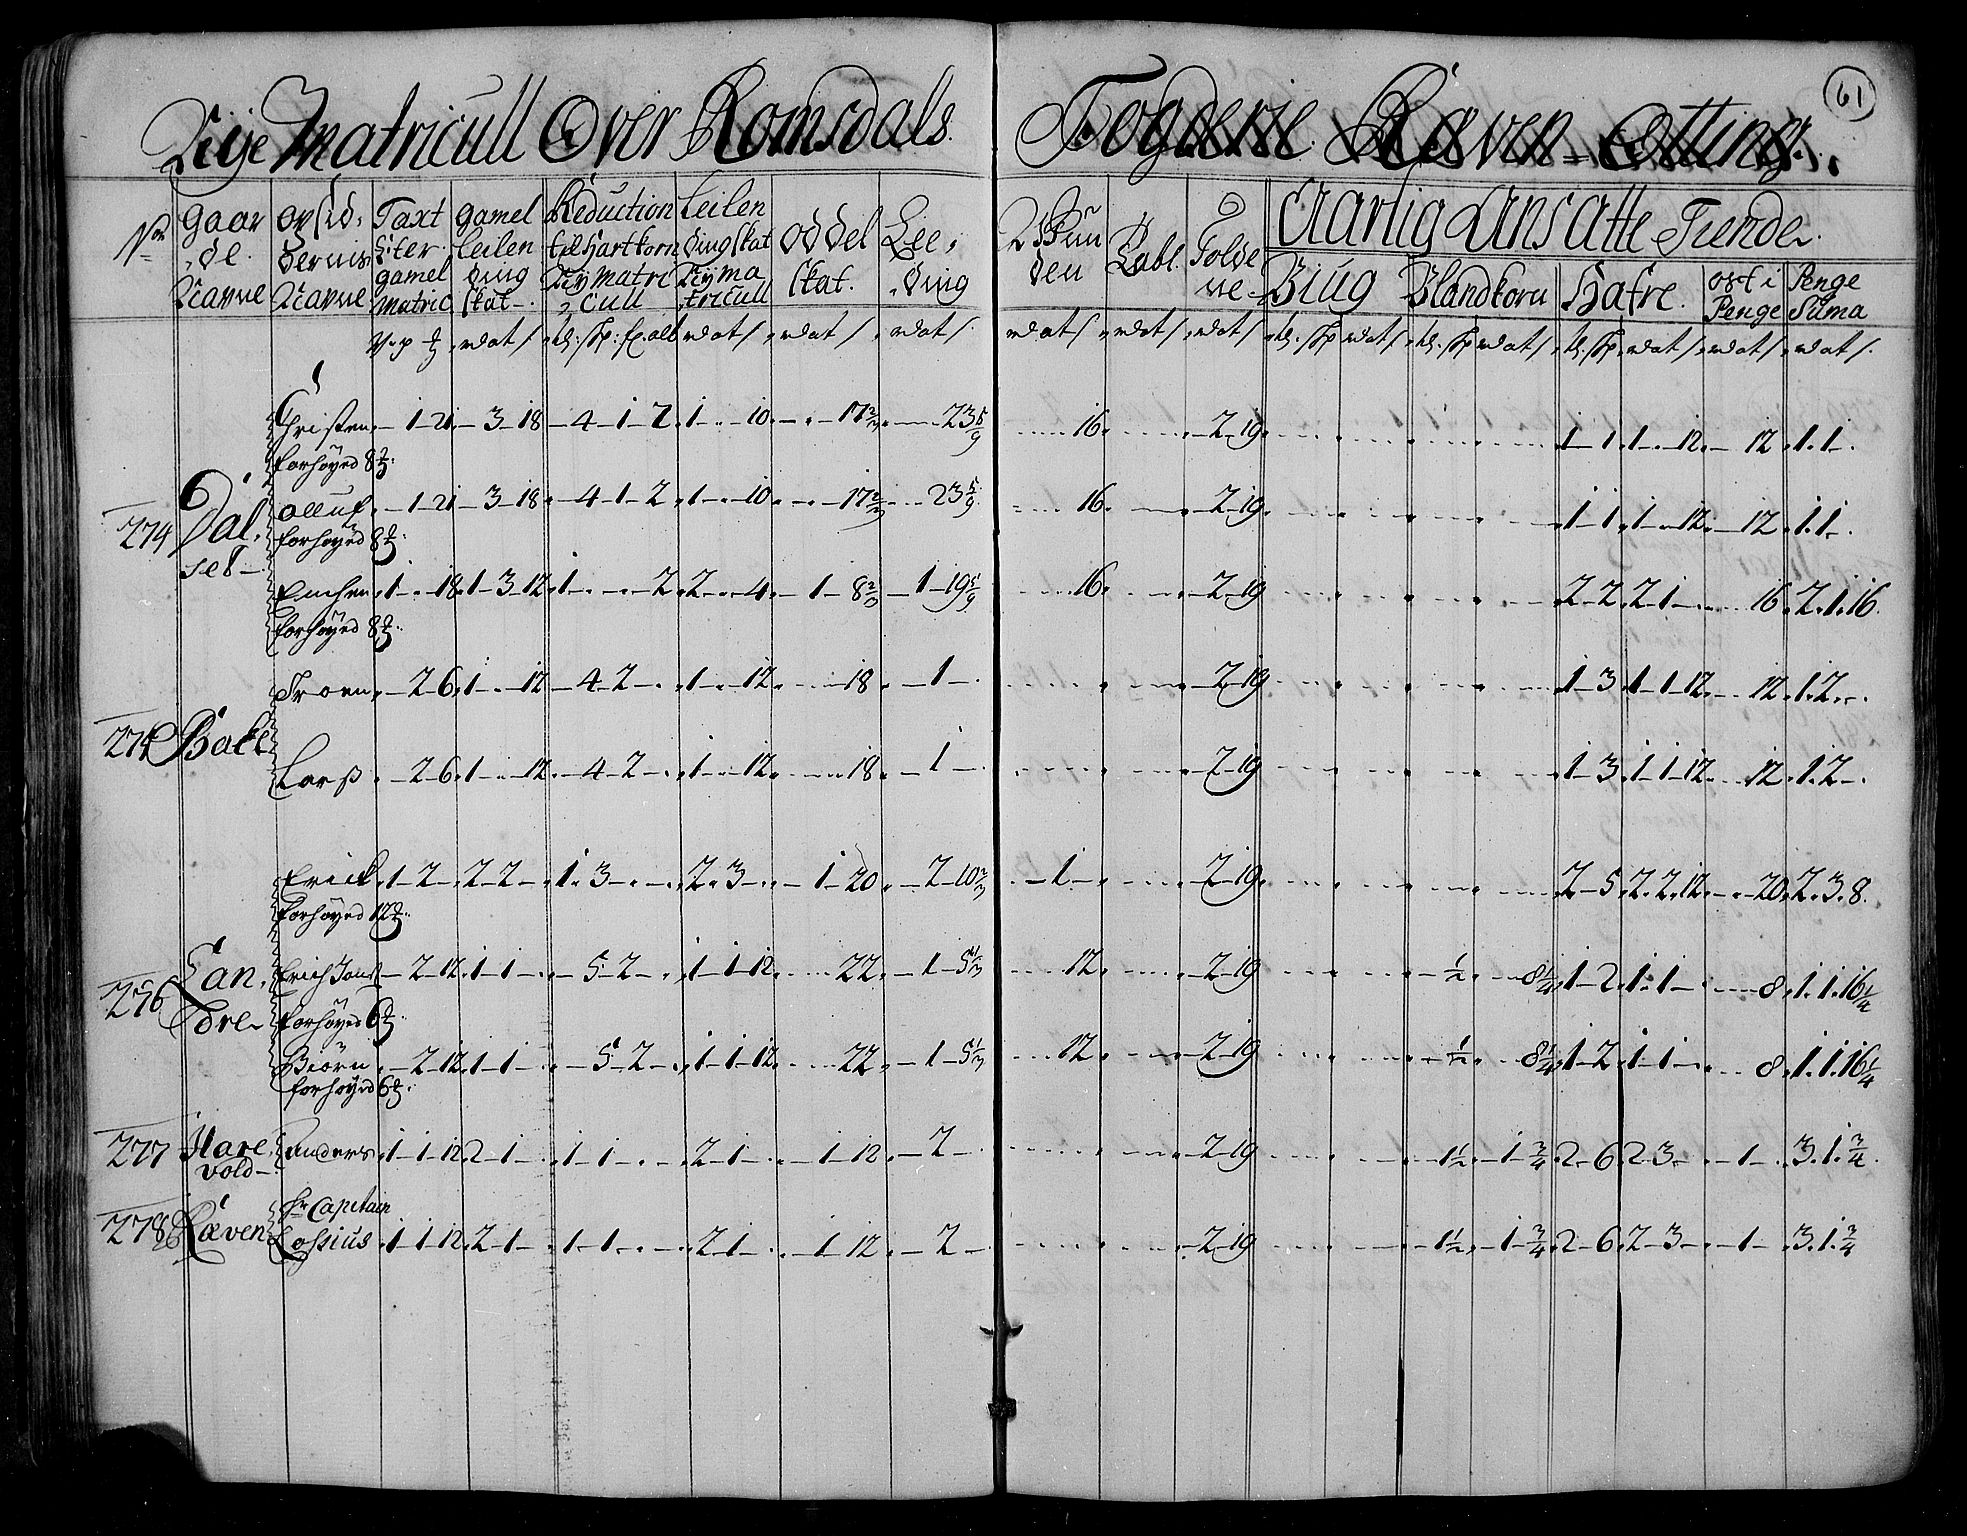 61
Nÿe Matricull Over Romsdals. Fogderie. Røven-Otting.
No Gaar de. Navne Opsid, dernis Navne Taxt Efter gamel Matric gamel Leilen ding skat Reduction til Hartkorn Nÿ Matri cull Leilen dingskat Nÿ Ma tricull Oddel skat. Lee, ding
Wŭn den Rabl. Tolde ne Aarlig Ansatte Tiende.
Biŭg Blandkorn Hafre. ost i Penge Penge Sŭma
Christen 1-21 3-18 4-1-2 1-10 17 2/3 23 5/9 16 2-19 1-1 1-12 12 1.1
forhøyed 8
274 Dal, set
Olluf 1-21 3-18 4-1-2 1-10 17 2/3 23 5/9 16 2-19 1-1 1-12 12 1.1
forhøyed 8
1-18 1-3-12 1-2 2-4 1-8 1-19 5/9 16 2-19 2-2 2-1 16 2.1.16
forhøyed 8
Troen 2-6 1-12 4-2 1-12 18 1 2-19 1-3 1-1-12 12 1.2
Bake
Lars 2-6 1-12 4-2 1-12 18 1 2-19 1-3 1-1-12 12 1.2
Erick 1-2 2-2 1-3 2-3 1-20 2-10 2/3 1 2-19 2-5 2-2-12 20 2.3.8
forhøyed 12
276 Lan, dre
Erich Jons 2-12 1-1 5-2 1-1-12 22 1-5 1/3 12 2-19 1/2 8 1/4 1-2 1-1 8 1.1.16 1/4
forhøyed 6
Biörn 2-12 1-1 5-2 1-1-12 22 1-5 1/3 12 2-19 1/2 8 1/4 1-2 1-1 8 1.1.16 1/4
forhøyed 6
277 Hare, vold Anders 1-1-12 2-1 1-1 2-1 1-12 2 2-19 1 1/2 1 3/4 2-6 2-3 1 3.1 3/4
278 Røven Hr Capitain Lossius 1-1-12 2-1 1-1 2-1 1-12 2 2-19 1 1/2 1 3/4 2-6 2-3 1 3.1 3/4